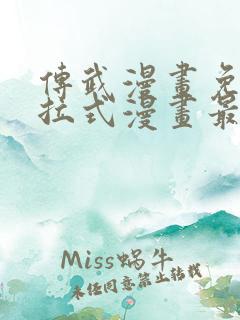 傳武漫畫免
拉式漫畫最
Miss蜗牛
未经同意禁止转载